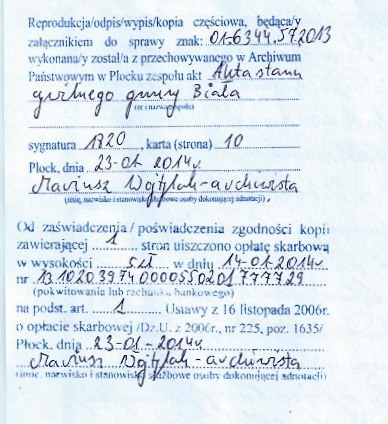 Reprodukcja/odpis/wypis/kopia częściowa, będąca/y
załącznikiem do sprawy znak: 01-6344.57.2013
wykonana/y został/a z przechowywanego w Archiwum
Państwowym w Płocku zespołu akt Akta stanu
cywilnego gminy Biała
(nr i nazwa zespołu)
sygnatura 1820, karta (strona) 10
Płock, dnia 23-01-2014r
Mariusz Wojtylak-archiwista
(imię, nazwisko i stanowisko służbowe osoby dokonującej adnotacji)
Od zaświadczenia / poświadczenia zgodności kopii
zawierającej 1 stron uiszczono opłatę skarbową
w wysokości 5zł w dniu 14-01-2014r
nr 13102039740000550201777729
(pokwitowania lub rachunku bankowego)
na podst. art. 1 Ustawy z 16 listopada 2006r.
o opłacie skarbowej /Dz.U. z 2006r., nr 225, poz. 1635/
Płock. dnia 23-01-2014r
Mariusz Wojtylak-archiwista
(imię, nazwisko i stanowisko służbowe osoby dokonującej adnotacji)